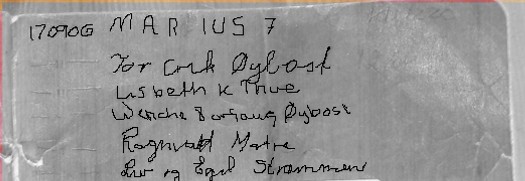 170906 MARIUS 7
Tor Erik Øybost
Lisbeth K Thue
Wenche Øybost
Ragnvald Matre
Liv og Egil Strømmen